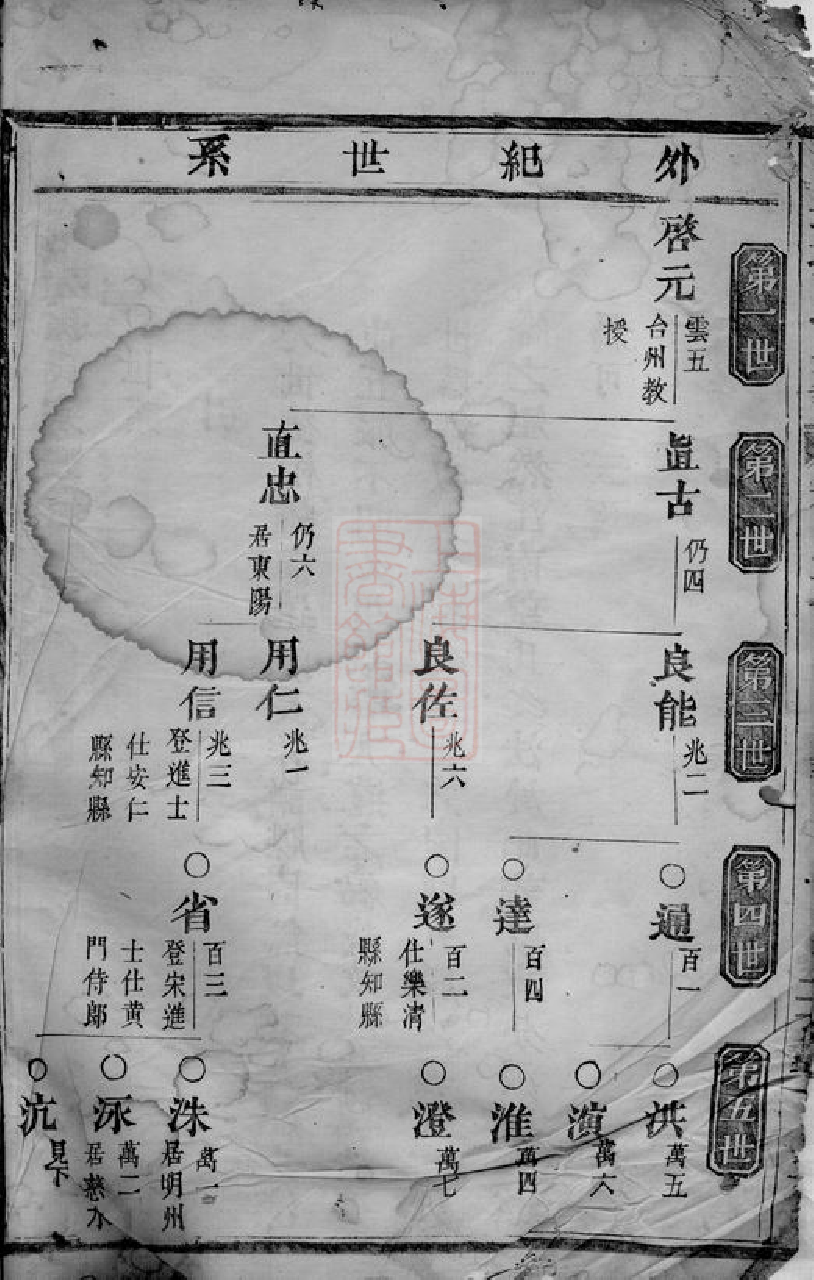 外紀世系
第一世
啓元
雲五
台州教
授
第二世
直古
仍四
直忠
仍六
居東陽
第三世
良能
兆二
良佐
兆六
用仁
兆一
用信
兆三
登進士
仕安仁
縣知縣
第四世
○通
百一
○達
百四
○遂
百二
仕樂清
縣知縣
○省
百三
登宋進
士仕黄
門侍郎
第五世
○洪
萬五
○演
萬六
○淮
萬四
○澄
萬七
○洙
萬一
居明州
○泳
萬二
居慈水
○沆
見下